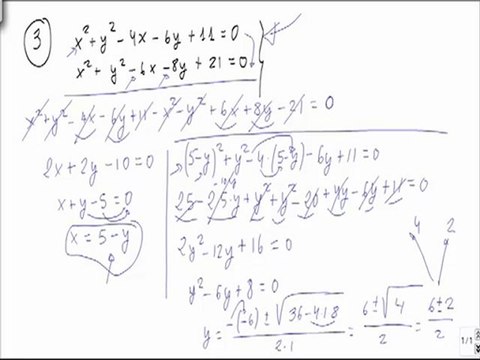 3
x² + y² - 4x - 6y + 11 = 0
x² + y² - 6x - 8y + 21 = 0
x² + y² - 4x - 6y + 11 - x² - y² + 6x + 8y - 21 = 0
2x + 2y - 10 = 0
x + y - 5 = 0
x = 5 - y
(5-y)² + y² - 4·(5-y) - 6y + 11 = 0
25 - 2·5·y + y² + y² - 20 + 4y - 6y + 11 = 0
2y² - 12y + 16 = 0
y² - 6y + 8 = 0
y = (-(-6) ± √(36 - 4·1·8)) / (2·1) = (6 ± √4) / 2 = (6 ± 2) / 2
4 2
1/1